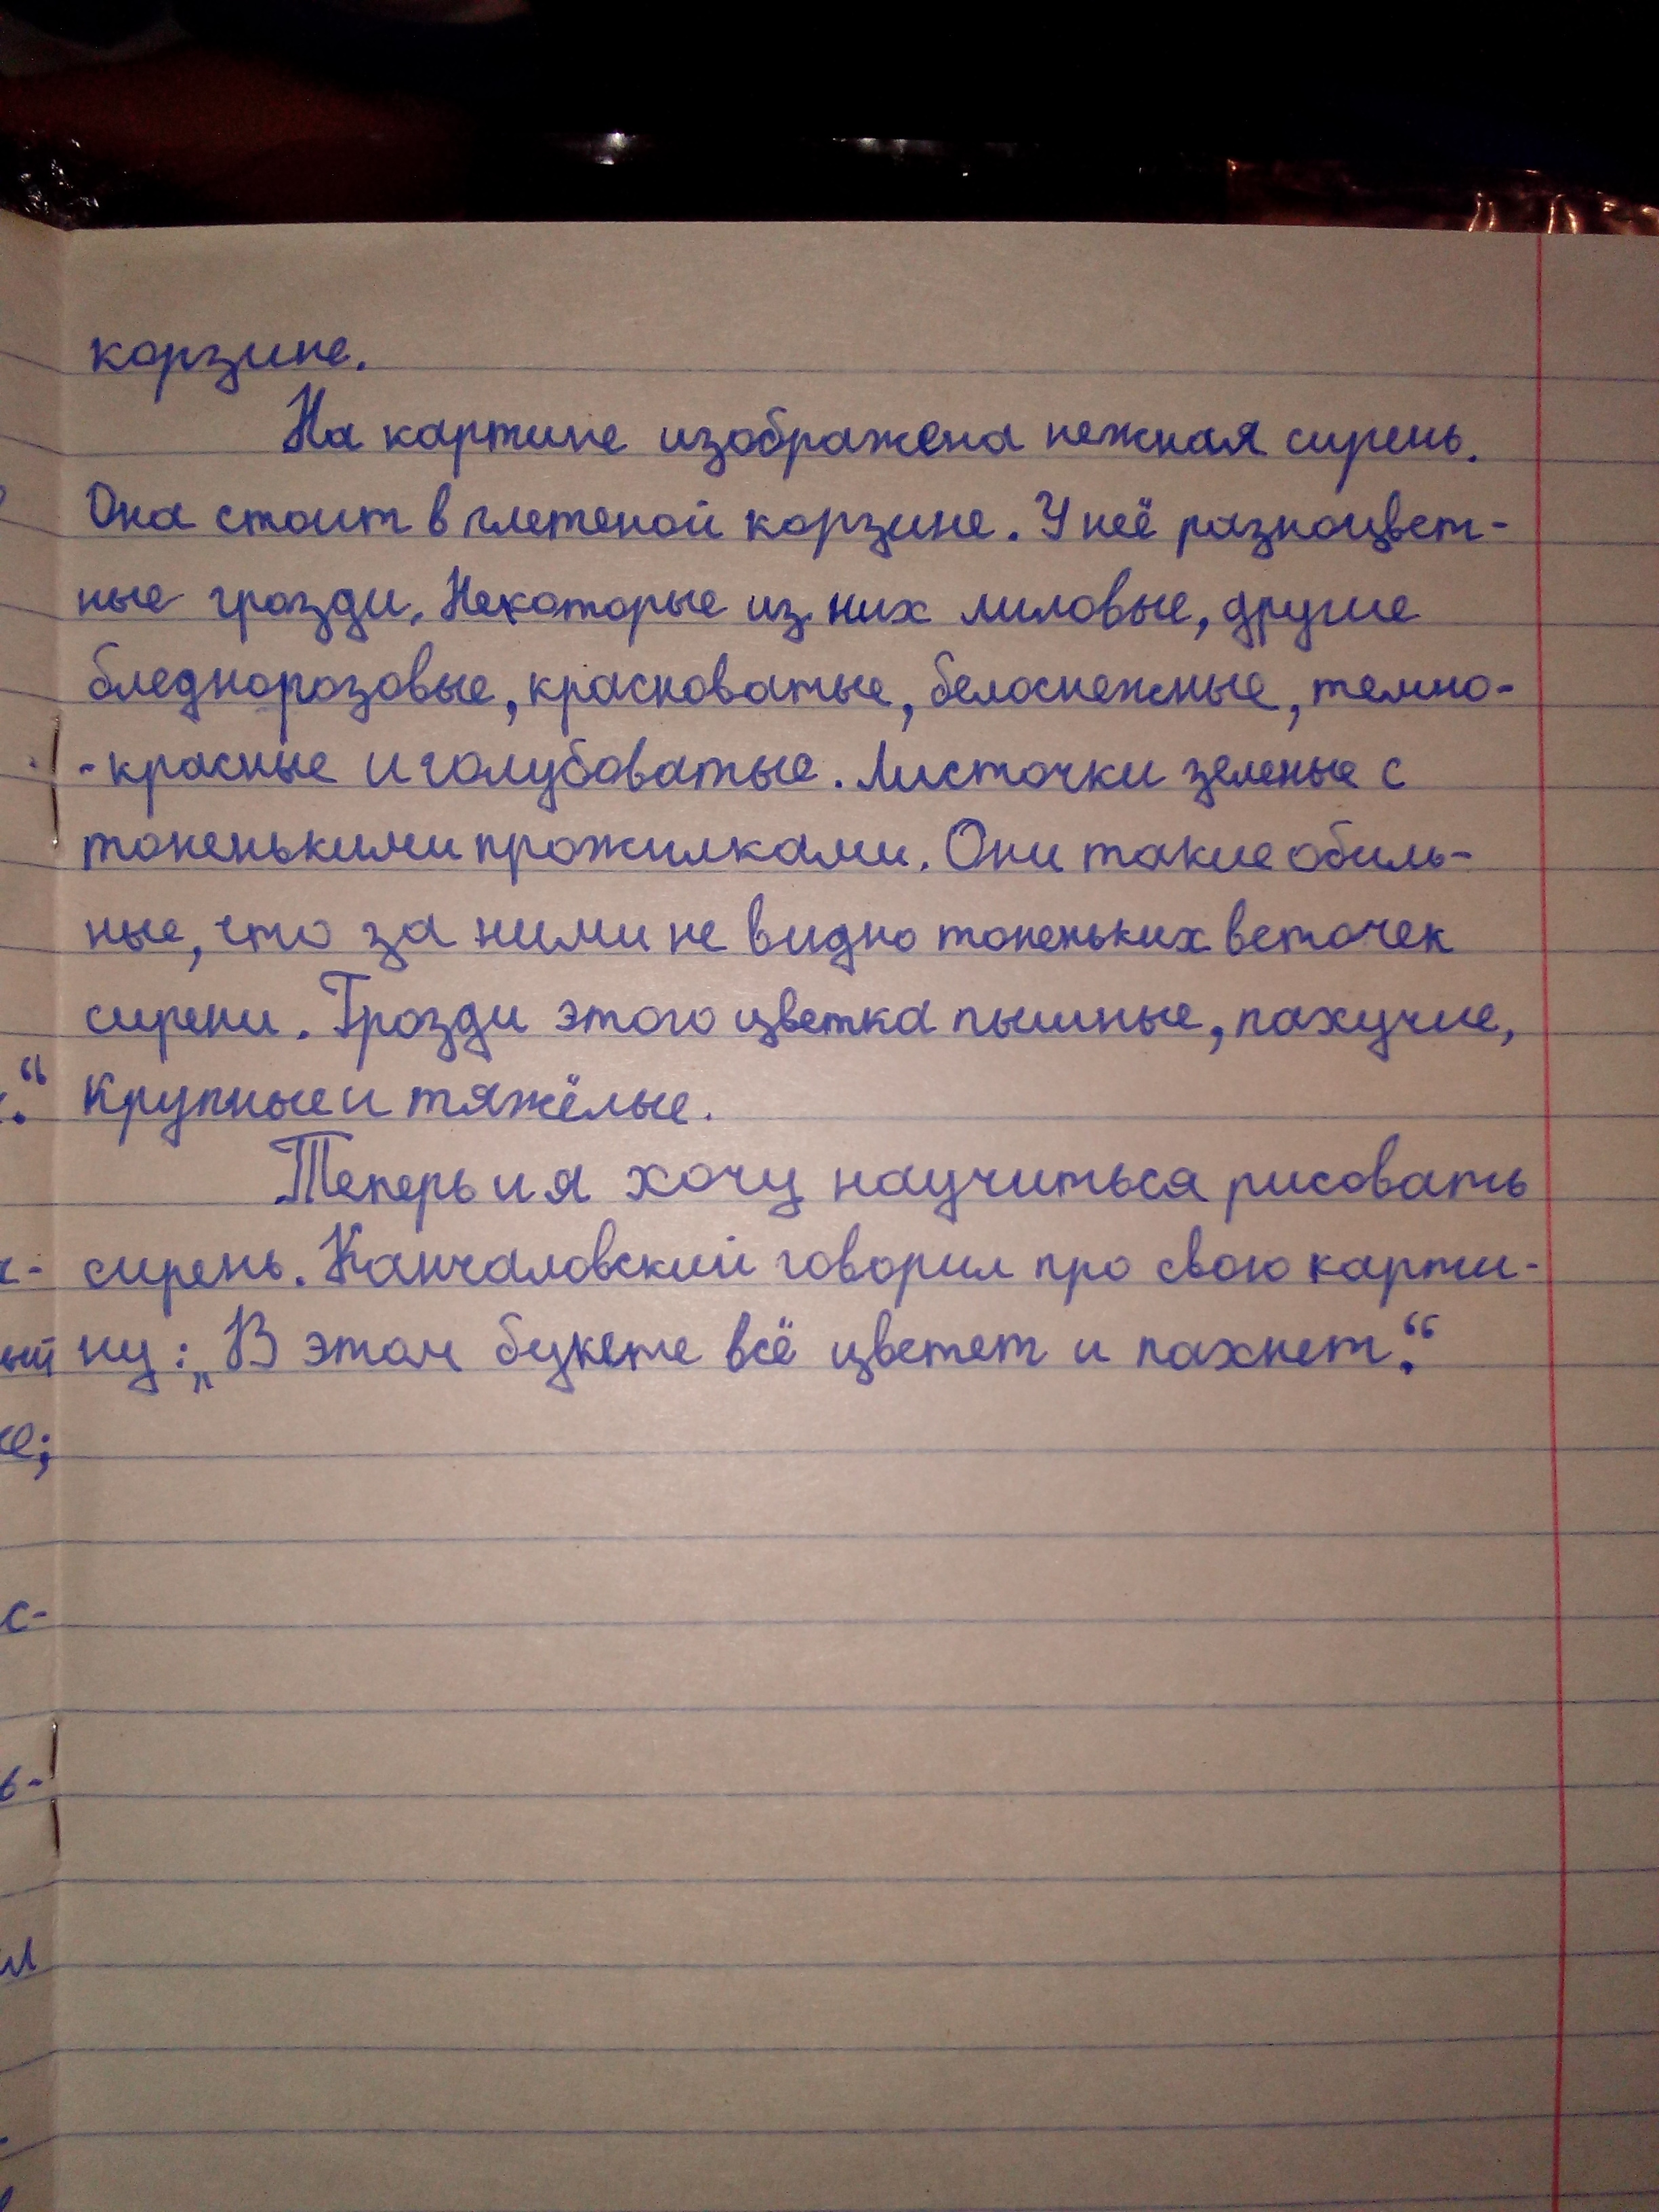 корзине.
На картине изображена нежная сирень.
Она стоит в плетеной корзине. У неё разноцвет-
ные грозди. Некоторые из них лиловые, другие
бледнорозовые, красноватые, белоснежные, темно-
-красные и голубоватые. Листочки зеленые с
тоненькими прожилками. Они такие обиль-
ные, что за ними не видно тоненьких веточек
сирени. Грозди этого цветка пышные, пахучие,
крупные и тяжёлые.
Теперь и я хочу научиться рисовать
сирень. Канчаловский говорил про свою карти-
ну: „В этом букете всё цветет и пахнет.“